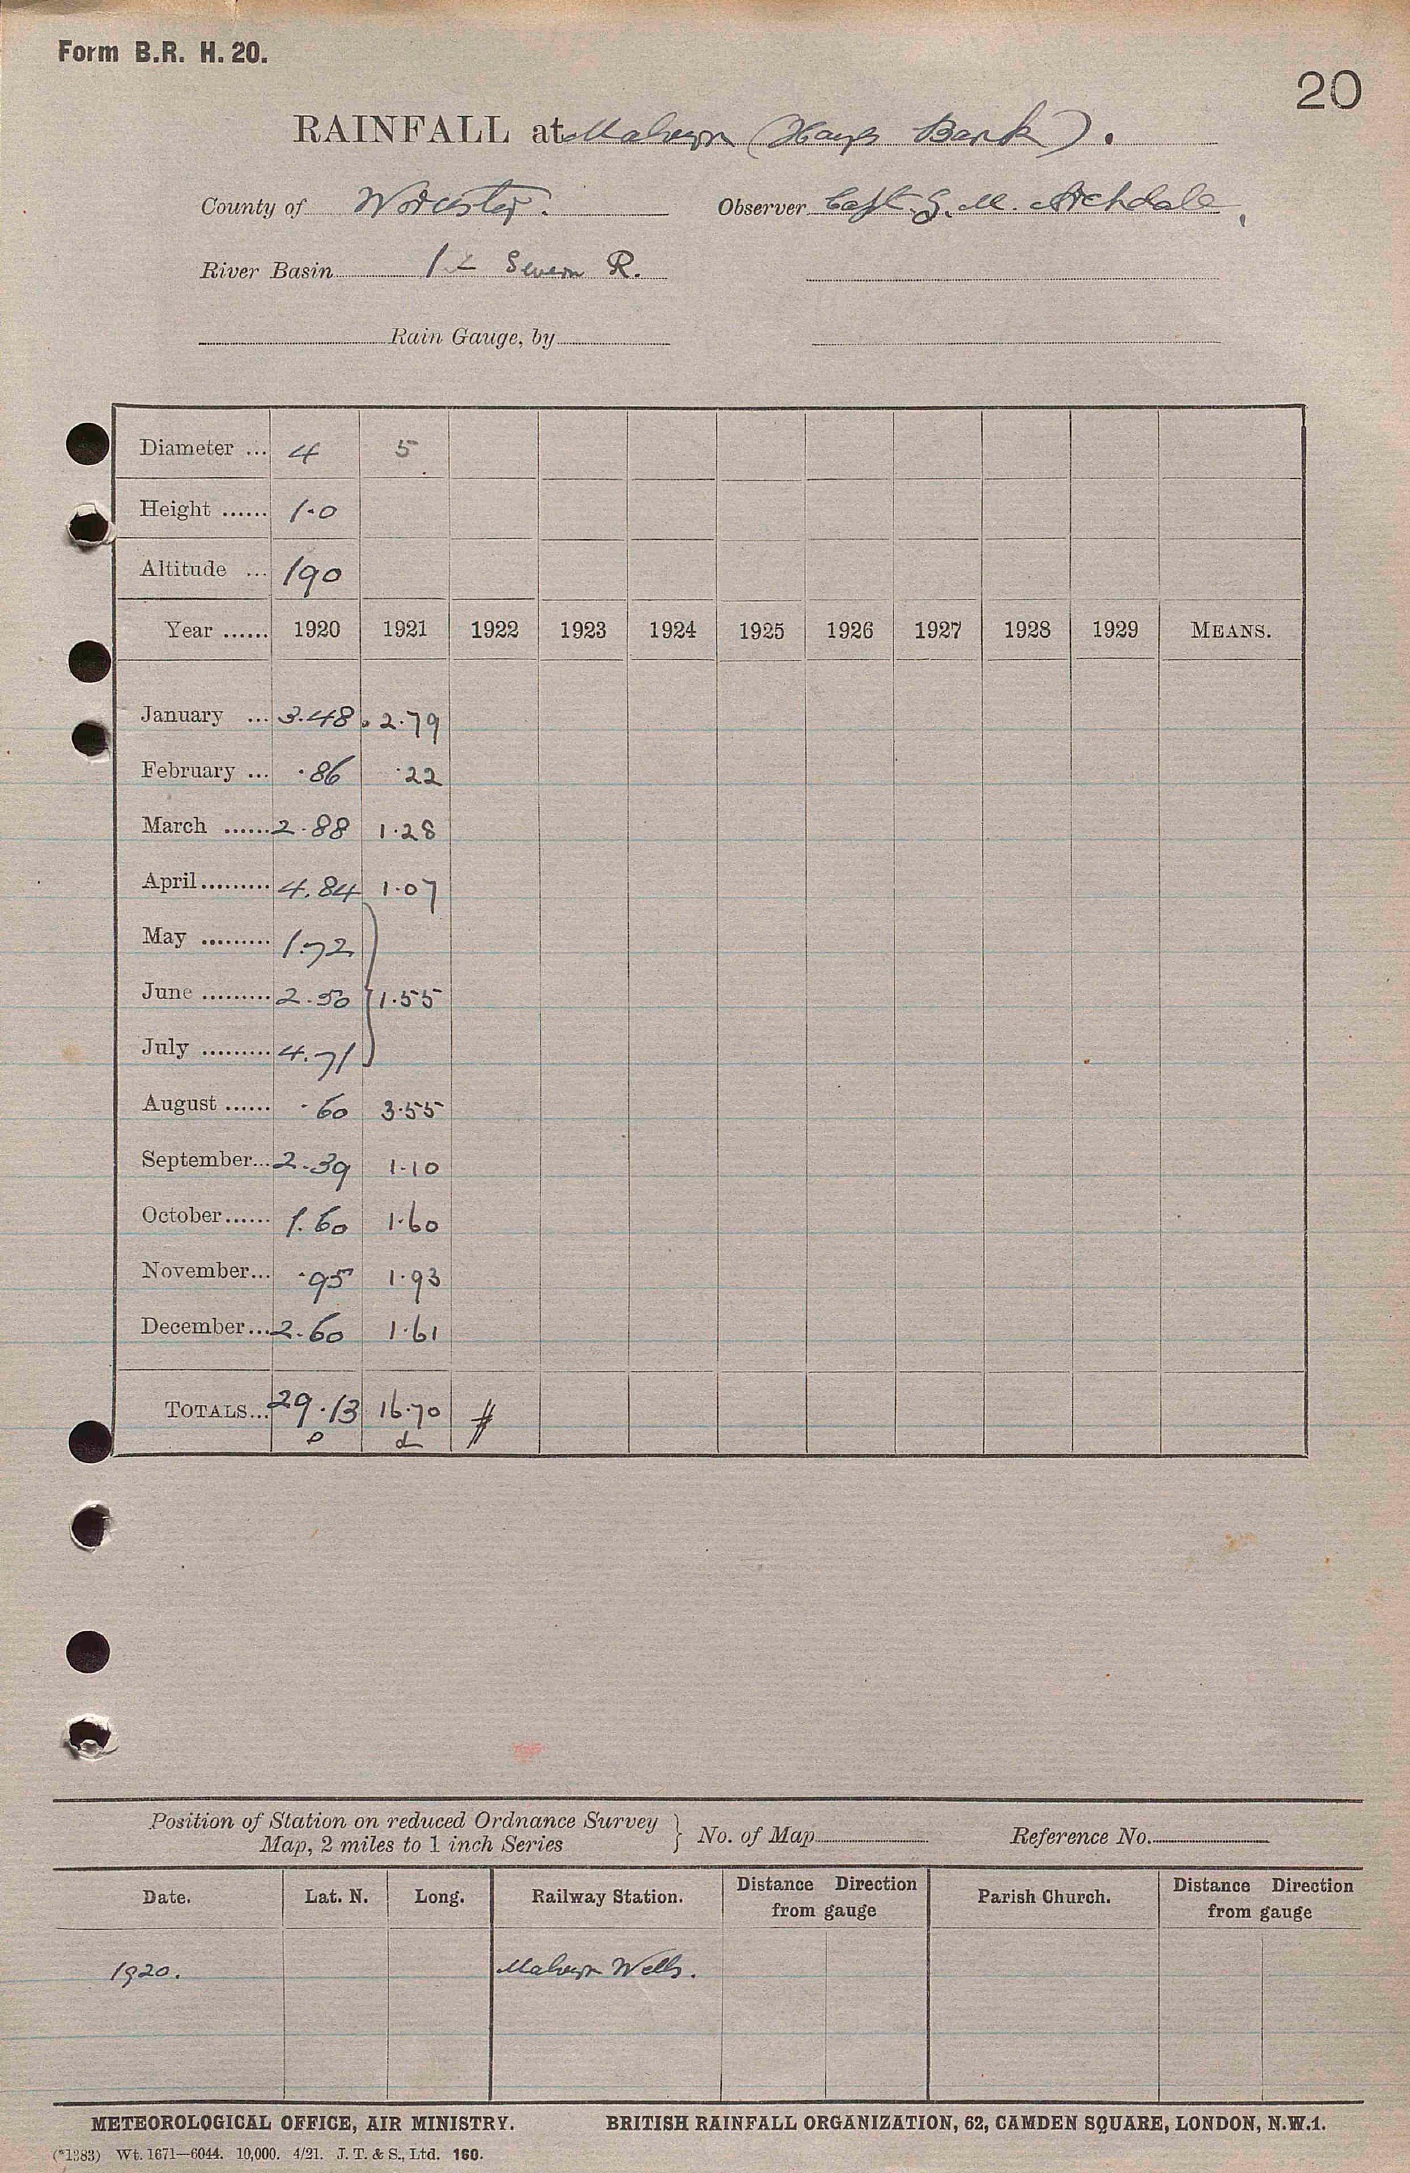 Form B.R. H. 20.
20
RAINFALL at Malvern (Hayes Bank).
County of Worcester. Observer Capt. G. M. Archdale,
River Basin Severn R.
Rain Gauge, by
Diameter ... 4 5
Height ...... 1.0
Altitude ... 190
Year ...... 1920 1921 1922 1923 1924 1925 1926 1927 1928 1929 MEANS.
January ... 3.48 2.79
February ... .86 .22
March ...... 2.88 1.28
April ......... 4.84 1.07
May ......... 1.72
June ......... 2.50 } 1.55
July ......... 4.71
August ...... .60 3.55
September... 2.39 1.10
October...... 1.60 1.60
November... .95 1.93
December... 2.60 1.61
TOTALS... 29.13 16.70 #
Position of Station on reduced Ordnance Survey
Map, 2 miles to 1 inch Series } No. of Map Reference No.
Date. Lat. N. Long. Railway Station. Distance Direction from gauge Parish Church. Distance Direction from gauge
1920. Malvern Wells.
METEOROLOGICAL OFFICE, AIR MINISTRY. BRITISH RAINFALL ORGANIZATION, 62, CAMDEN SQUARE, LONDON, N.W.1.
(*1383) Wt. 1671—6044. 10,000. 4/21. J. T. & S., Ltd. 160.